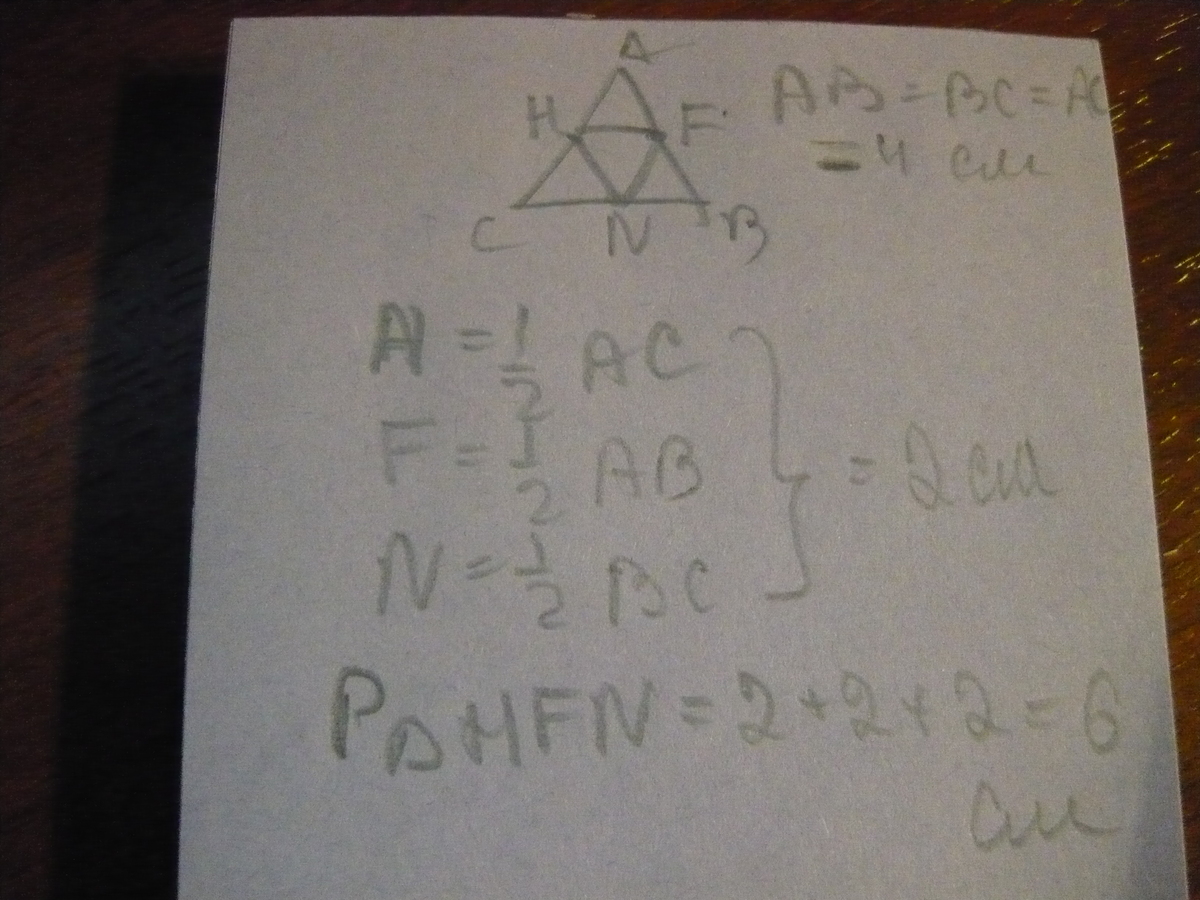 A
H F
C N B
AB = BC = AC
= 4 см
H = 1/2 AC
F = 1/2 AB
N = 1/2 BC
} = 2 см
P△HFN = 2+2+2 = 6
см